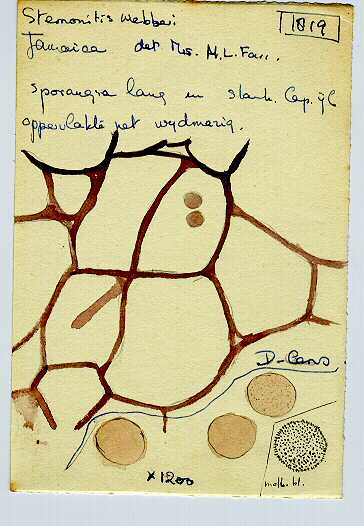 Stemonitis Webberi
1819
Jamaica det Mrs. M.L. Farr.
sporangia lang en slank. Cap. ijl
oppervlakte net wydmazig.
D-Cons
x1200